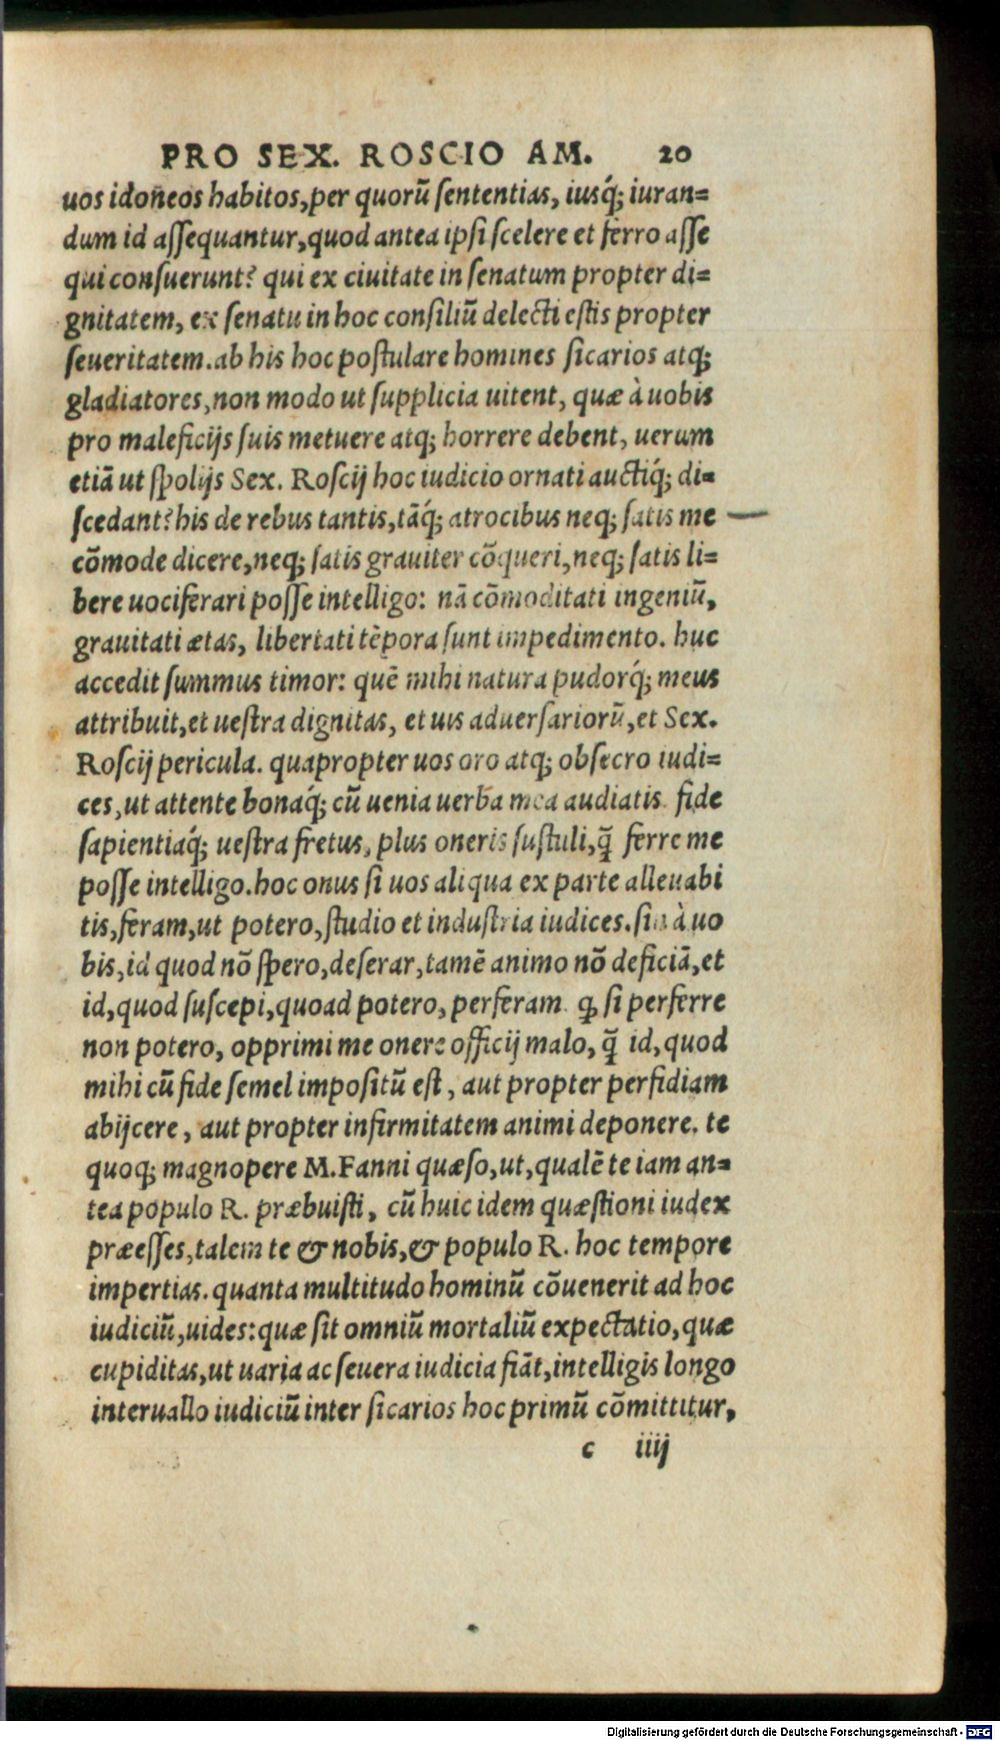 PRO SEX. ROSCIO AM. 20
uos idoneos habitos,per quorũ ſententias, iusq́; iuran=
dum id aſſequantur,quod antea ipſi ſcelere et ferro aſſe
qui conſuerunt? qui ex ciuitate in ſenatum propter di=
gnitatem, ex ſenatu in hoc conſiliũ delecti eſtis propter
ſeueritatem.ab his hoc poſtulare homines ſicarios atq;
gladiatores,non modo ut ſupplicia uitent, quæ à uobis
pro maleficijs ſuis metuere atq; horrere debent, uerum
etiã ut ſpolijs Sex. Roſcij hoc iudicio ornati auctiq́; di=
ſcedant?his de rebus tantis,tãq́; atrocibus neq; ſatis me
cõmode dicere,neq; ſatis grauiter cõqueri,neq; ſatis li=
bere uociferari poſſe intelligo: nã cõmoditati ingeniũ,
grauitati ætas, libertati tẽpora ſunt impedimento. huc
accedit ſummus timor: quẽ mihi natura pudorq́; meus
attribuit,et ueſtra dignitas, et uis aduerſariorũ,et Sex.
Roſcij pericula. quapropter uos oro atq; obſecro iudi=
ces,ut attente bonaq́; cũ uenia uerba mea audiatis. fide
ſapientiaq́; ueſtra fretus, plus oneris ſuſtuli,q̃ ferre me
poſſe intelligo.hoc onus ſi uos aliqua ex parte alleuabi
tis,feram,ut potero,ſtudio et induſtria iudices.ſin à uo
bis,id quod nõ ſpero,deſerar,tamẽ animo nõ deficiã,et
id,quod ſuſcepi,quoad potero, perferam. ꝙ ſi perferre
non potero, opprimi me onere officij malo, q̃ id,quod
mihi cũ fide ſemel impoſitũ eſt, aut propter perfidiam
abijcere, aut propter infirmitatem animi deponere. te
quoq; magnopere M.Fanni quæſo,ut,qualẽ te iam an=
tea populo R. præbuiſti, cũ huic idem quæſtioni iudex
præeſſes,talem te & nobis,& populo R. hoc tempore
impertias.quanta multitudo hominũ cõuenerit ad hoc
iudiciũ,uides:quæ ſit omniũ mortaliũ expectatio,quæ
cupiditas,ut uaria ac ſeuera iudicia fiãt,intelligis longo
interuallo iudiciũ inter ſicarios hoc primũ cõmittitur,
c iiij
Digitalisierung gefördert durch die Deutsche Forschungsgemeinschaft - DFG